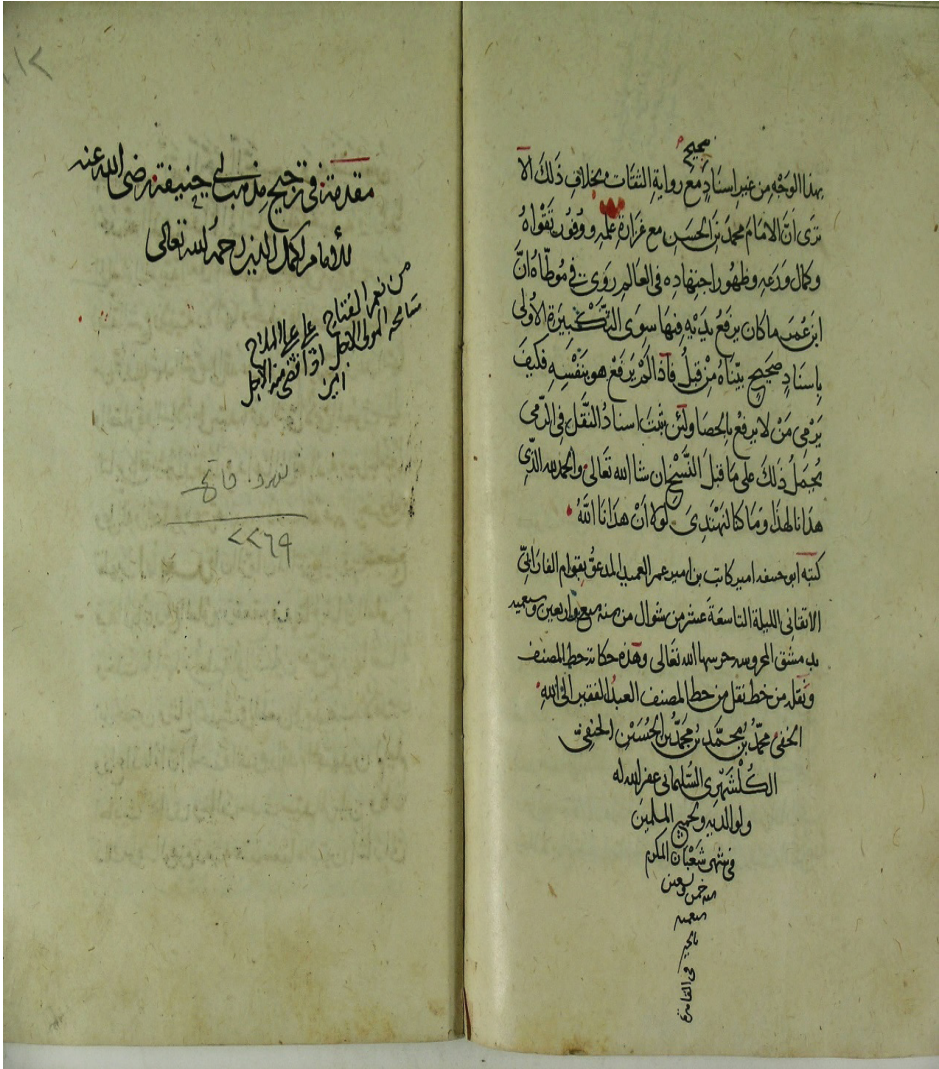 صحيح
بهذا الوجه من غير اسنادٍ مع رواية الثقات بخلاف ذلك ألا
ترى أنّ الامام محمد بن الحسن مع غزارة علمه ووفور تقواه
وكمال ورعه وظهور اجتهاده في العالم روى في موطّاه انّ
ابن عمر ما كان يرفع يديه فيها سوى التكبيرة الاولى
باسنادٍ صحيحٍ بيّناه من قبل فاذا لم يرفع هو بنفسه فكيف
يرمي من لا يرفع بالحصا ولئن ثبت اسناد النقل في الرمي
يحمل ذلك على ما قبل النسخ ان شا الله تعالى والحمد لله الذي
هدانا لهذا وما كنا لنهتدي لولا ان هدانا الله
كتبه ابو حنيفه امير كاتب بن امير عمر العميد المدعو بقوام الفارابي
الاتقاني الليلة التاسعة عشر من شوال من سنه سبع واربعين وسبعمايه
بدمشق المحروسه حرسها الله تعالى وهذه حكاية خط المصنف
ونقله من خط نقل من خط المصنف العبد الفقير الى الله
الخفي محمد بن محمد بن محمد بن الحسين الحنفي
الكلشهري السليماني غفر الله له
ولوالديه ولجميع المسلمين
في شهر شعبان المكرم
سنه خمس
بالخير
في القاهرة
مقدمة في ترجيح مذهب ابي حنيفة رضى الله عنه
للامام اكمل الدين رحمه الله تعالى
من نعم الفتاح على علي الملاح
سامحه المولى الاجل اذا انقضى منه الاجل
امين
فاتح
٢٢٦٩